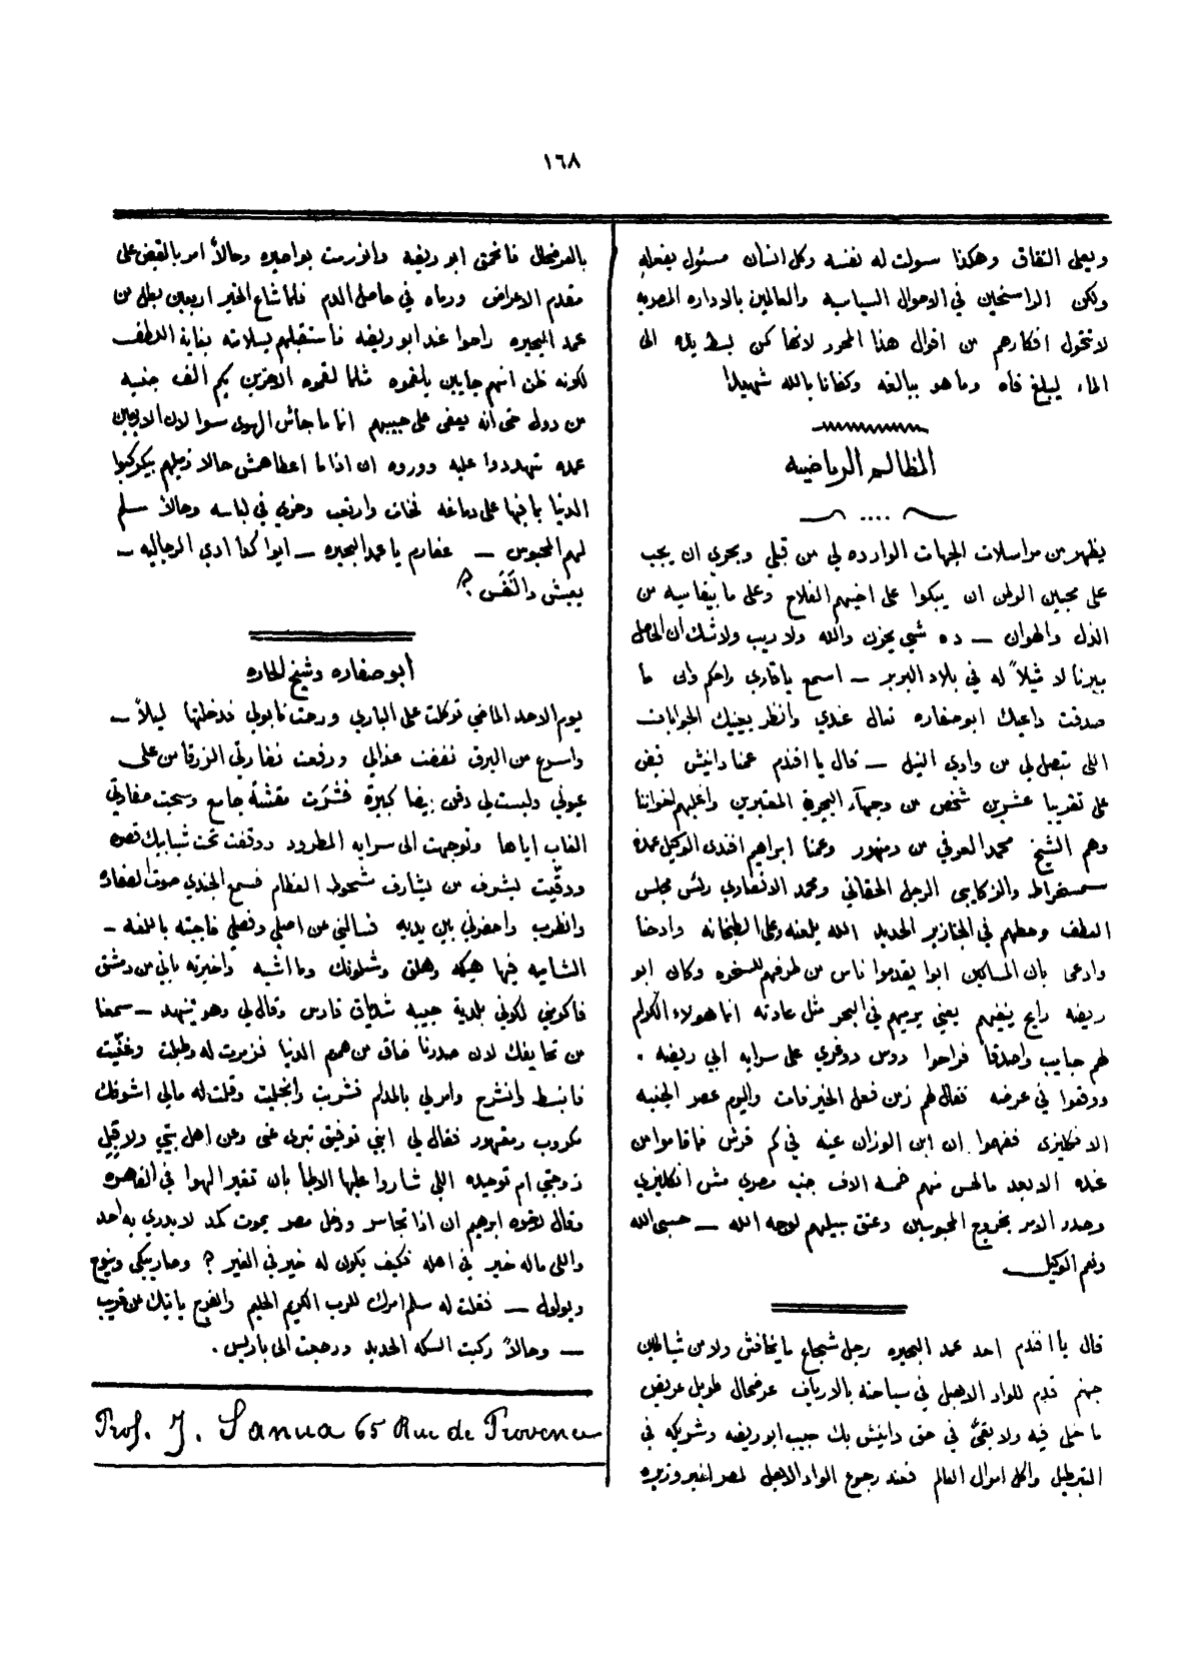 ١٦٨
ويعلى النفاق وهكذا سولت له نفسه وكل انسان مسئول بفعله
ولكن الراسخين في الاحوال السياسيه والعالمين بالاداره المصريه
لا تتحول افكارهم من اقوال هذا المحرر لانها كمن بسط يده الى
الماء ليبلغ فاه وما هو ببالغه وكفانا بالله شهيدا
المظالم الرياضيه
يظهر من مراسلات الجهات الوارده لي من قبلي وبحري ان يجب
على محبين الوطن ان يبكوا على اخيهم الفلاح وعلى ما بيقاسيه من
الذل والهوان — ده شي يحزن والله ولا ريب ولا شك ان الحاصل
ببرنا لا مثيلاً له في بلاد البربر — اسمع يا قاري راحكم والى ما
صدقت داعيك ابو صفاره تعال عندي وانظر بعينيك الجوابات
اللى بتصل لي من وادي النيل — قال يا افندم عمنا دانيش قبض
على تقريبا عشرين شخص من وجهآء البحيرة المعتبرين واغلبهم اخواننا
وهم الشيخ محمد العوفي من دمنهور وعمنا ابراهيم افندى الوكيل عمدة
سمخراط والزكايبى الرجل الحقاني ومحمد الانصاري رئس مجلس
العطف وحطهم في الجنازير الحديد الله يلعنه وعلى الطبخانه وادحنا
وادعى بان المساكين ابوا يقدموا ناس من طرفهم للسخره وكان ابو
ريضه رايح ينفيهم يعني يرميهم في البحر مثل عادته انما هولاء الكرام
لهم حبايب واصدقا فراحوا دوس دوغري على سرايه ابي ريضه .
ووقعوا في عرضه فقال لهم زمن فعل الخير فات واليوم عصر الجنيه
الانكليزى ففهموا ان ابن الوزان عينه في كم قرش فما قاموا من
عنده الا بعد ما لهس منهم خمسه الاف جنيه مصري مش انكليزي
وصدر الامر بخروج المحبوسين وعتق سبيلهم لوجه الله — حسبي الله
ونعم الوكيل
قال يا افندم احد عمد البحيره رجل شجاع ما يخافش ولا من شياطين
جهنم قدم للواد الاهبل في سياحته بالارياف عرضحال طويل عريض
ما خلى فيه ولا بقىّ في حق دانيش بك حبيب ابو ريضه وشريكه في
التبرطيل واكل اموال العالم فعند رجوع الواد الاهبل لمصر اخبر وزيره
بالعرضحال فانحمق ابو ريضه وانزرت بواصيره وحالاً امر بالقبض على
مقدم الاعراض ورماه في حاصل الدم فلما شاع الخبر اربعين بطل من
عمد البحيره راحوا عند ابو ريضه فاستقبلهم بسلامته بغاية اللطف
لكونه ظن انهم جايين يلقموه مثلما لقموه الاخرين بكم الف جنيه
من دوله حتى انه يعفى على حبيبهم انما ما جاش الهوى سوا لان الاربعين
عمده تهددوا عليه ووروه ان اذا ما اعطاهش حالا زميلهم بيكركبوا
الدنيا بما فيها على دماغه فخاف وارتعب وخري في لباسه وحالاً سلم
لهم المحبوس — عفارم يا عمد البحيره — ايوا كدا ادي الرجاليه —
يعيش والنَفَس ؟
ابو صفاره وشيخ الحاره
يوم الاحد الماضي توكلت على الباري ورحت نابولي فدخلتها ليلاً —
واسرع من البرق نفضت عذالي ورفعت نضارتي الزرقا من على
عيوني ولبست لي دقن بيضا كبيرة فشَرَت مقشّة جامع وسحبت صفارتي
الغاب اياها وتوجهت الى سرايه المطرود ووقفت تحت شبابيك قصره
ودقيّت بشرف من بشارف شحوط العظام فسمع الجندي صوت الصفاره
وانطرب واحضرني بين يديه فسالني عن اصلي وفصلي فاجبته باللغه —
الشاميه فيها هيكه وهلق وشلونك وما اشبه واخبرته باني من دمشق
فاكرمني لكوني بلدية حبيبه شكيان فارس وقال لي وهو يتنهد — سمعنا
من تحايفك لان صدرنا ضاق من هموم الدنيا فزمرت له وطبلت وغنّيت
فانبسط وانشرح وامر لي بالمدام فشربت وانجليت وقلت له مالي اشوفك
مكروب ومقهور فقال لي ابني توفيق تبرى عنى وعن اهل بيتي ولا قبِل
زوجتي ام توحيده اللي شاروا عليها الاطبا بان تغير الهوا في القاهره
وقال لاخوه ابرهيم ان اذا تجاسر ودخل مصر يموت كمد لا يدري به احد
واللى ماله خير في اهله فكيف يكون له خير في الغير ؟ وصار يبكي وينوح
ويولول — فقلت له سلم امرك للرب الكريم الحليم والفرج ياتيك عن قريب
— وحالاً ركبت السكه الحديد ورجعت الى باريس .
Prof. J. Sanua 65 Rue de Provence